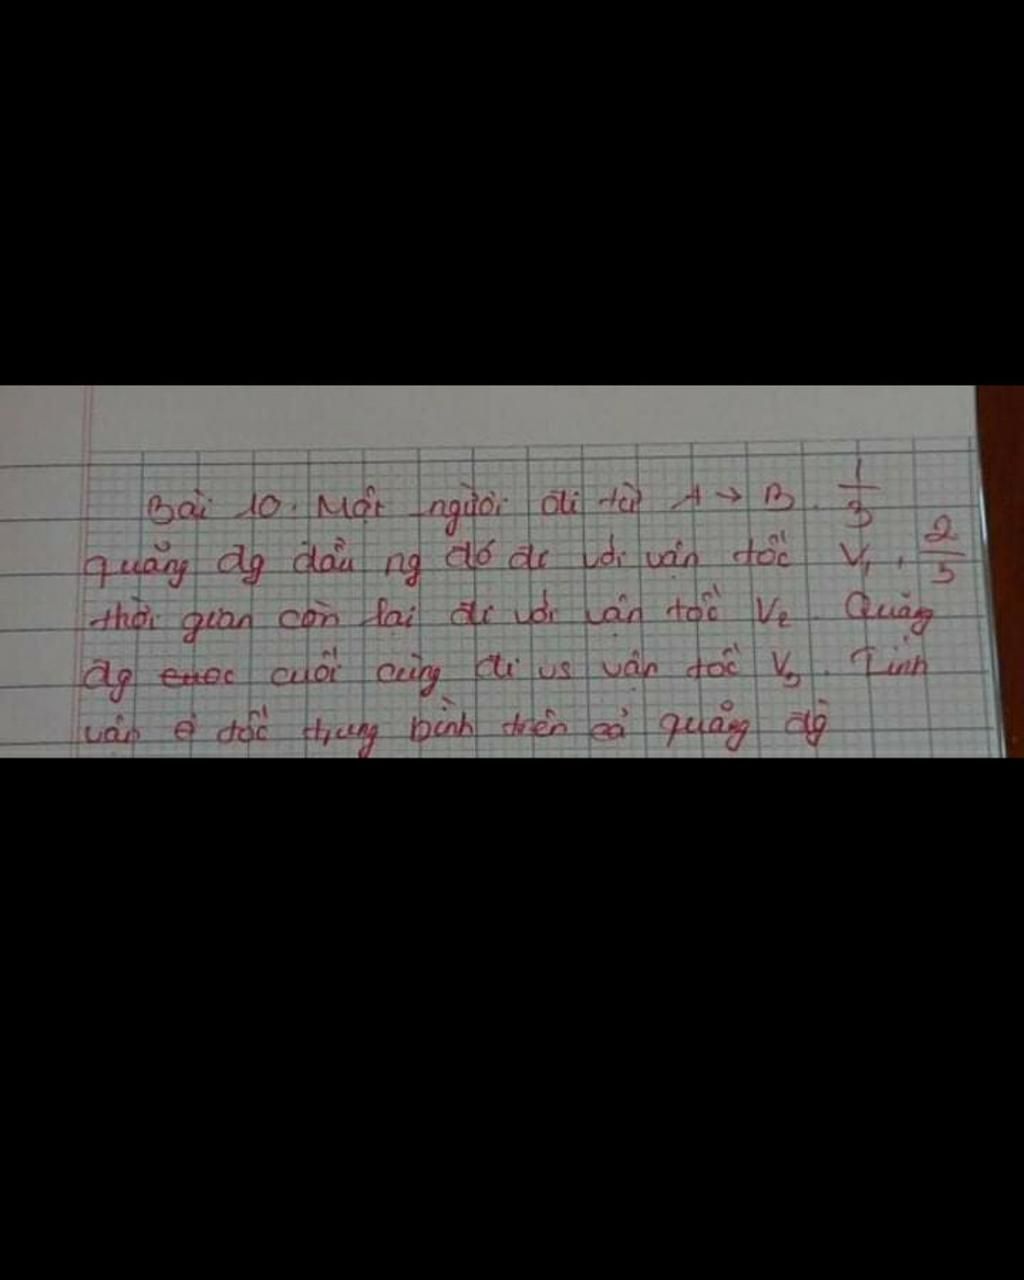 Bài 10. Một người đi từ A → B. 1/3
quãng đg đầu ng đó đi với vận tốc V₁, 2/5
thời gian còn lại đi với vận tốc V₂. Quãng
đg cuối cùng đi vs vận tốc V₃. Tính
vận tốc trung bình trên cả quãng đg